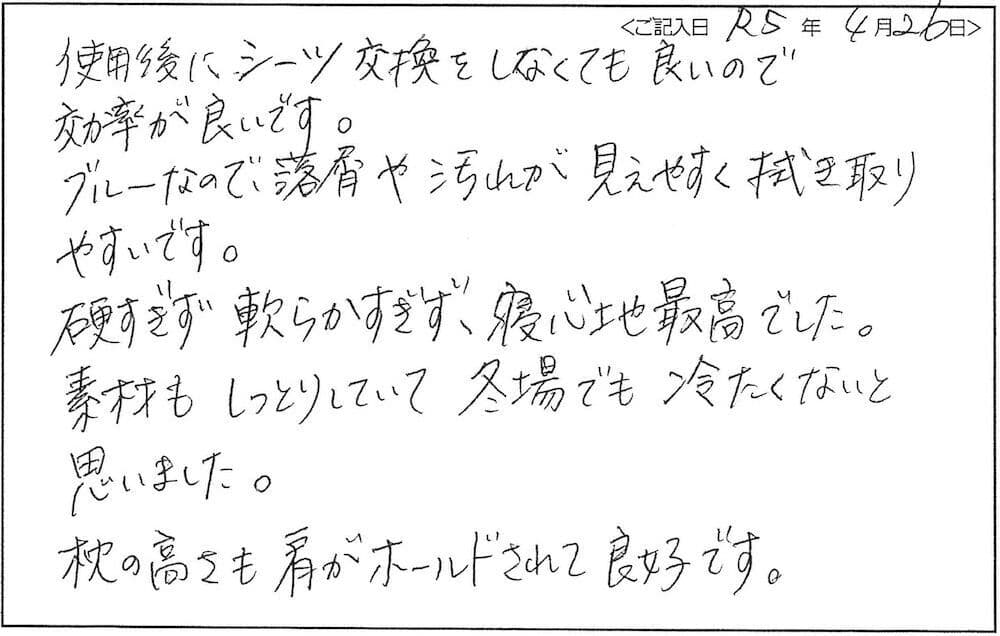 <ご記入日 R5 年 4月26日>
使用後に シーツ 交換をしなくても 良いので
効率が良いです。
ブルーなので、落屑や汚れが 見えやすく拭き取り
やすいです。
硬すぎず 軟らかすぎず、寝心地最高でした。
素材も しっとりしていて 冬場でも 冷たくないと
思いました。
枕の高さも 肩がホールドされて 良好です。